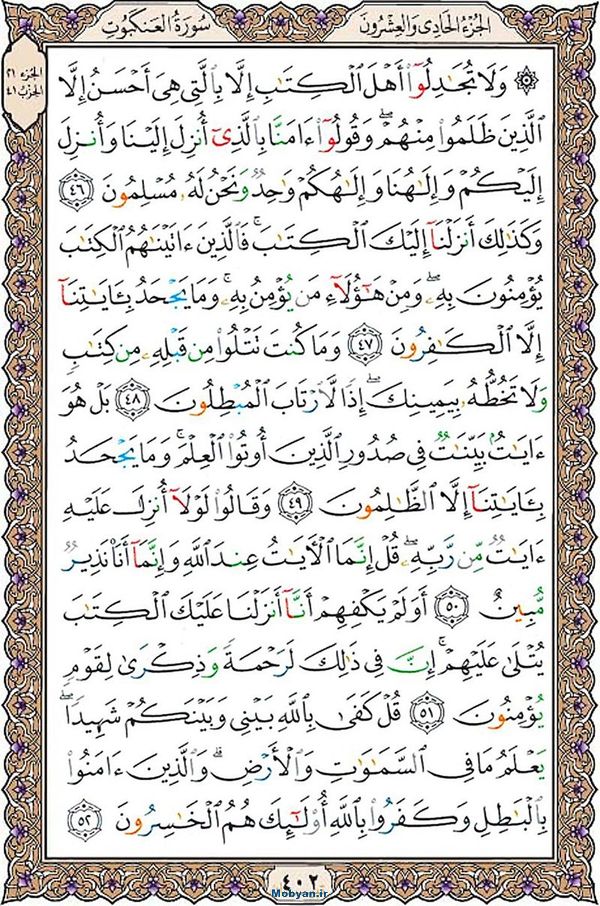 الجُزْءُ الحَادِى وَالعِشْرُونَ
سُورَةُ العَنكَبُوتِ
الجزء ٢١
الحزب ٤١
۞ وَلَا تُجَٰدِلُوٓا۟ أَهْلَ ٱلْكِتَٰبِ إِلَّا بِٱلَّتِى هِىَ أَحْسَنُ إِلَّا
ٱلَّذِينَ ظَلَمُوا۟ مِنْهُمْ ۖ وَقُولُوٓا۟ ءَامَنَّا بِٱلَّذِىٓ أُنزِلَ إِلَيْنَا وَأُنزِلَ
إِلَيْكُمْ وَإِلَٰهُنَا وَإِلَٰهُكُمْ وَٰحِدٌ وَنَحْنُ لَهُۥ مُسْلِمُونَ ٤٦
وَكَذَٰلِكَ أَنزَلْنَآ إِلَيْكَ ٱلْكِتَٰبَ ۚ فَٱلَّذِينَ ءَاتَيْنَٰهُمُ ٱلْكِتَٰبَ
يُؤْمِنُونَ بِهِۦ ۖ وَمِنْ هَٰٓؤُلَآءِ مَن يُؤْمِنُ بِهِۦ ۚ وَمَا يَجْحَدُ بِـَٔايَٰتِنَآ
إِلَّا ٱلْكَٰفِرُونَ ٤٧ وَمَا كُنتَ تَتْلُوا۟ مِن قَبْلِهِۦ مِن كِتَٰبٍ
وَلَا تَخُطُّهُۥ بِيَمِينِكَ ۖ إِذًا لَّٱرْتَابَ ٱلْمُبْطِلُونَ ٤٨ بَلْ هُوَ
ءَايَٰتٌۢ بَيِّنَٰتٌ فِى صُدُورِ ٱلَّذِينَ أُوتُوا۟ ٱلْعِلْمَ ۚ وَمَا يَجْحَدُ
بِـَٔايَٰتِنَآ إِلَّا ٱلظَّٰلِمُونَ ٤٩ وَقَالُوا۟ لَوْلَآ أُنزِلَ عَلَيْهِ
ءَايَٰتٌ مِّن رَّبِّهِۦ ۖ قُلْ إِنَّمَا ٱلْءَايَٰتُ عِندَ ٱللَّهِ وَإِنَّمَآ أَنَا۠ نَذِيرٌ
مُّبِينٌ ٥٠ أَوَلَمْ يَكْفِهِمْ أَنَّآ أَنزَلْنَا عَلَيْكَ ٱلْكِتَٰبَ
يُتْلَىٰ عَلَيْهِمْ ۚ إِنَّ فِى ذَٰلِكَ لَرَحْمَةً وَذِكْرَىٰ لِقَوْمٍ
يُؤْمِنُونَ ٥١ قُلْ كَفَىٰ بِٱللَّهِ بَيْنِى وَبَيْنَكُمْ شَهِيدًا ۖ
يَعْلَمُ مَا فِى ٱلسَّمَٰوَٰتِ وَٱلْأَرْضِ ۗ وَٱلَّذِينَ ءَامَنُوا۟
بِٱلْبَٰطِلِ وَكَفَرُوا۟ بِٱللَّهِ أُو۟لَٰٓئِكَ هُمُ ٱلْخَٰسِرُونَ ٥٢
٤٠٢
Mobyan.ir